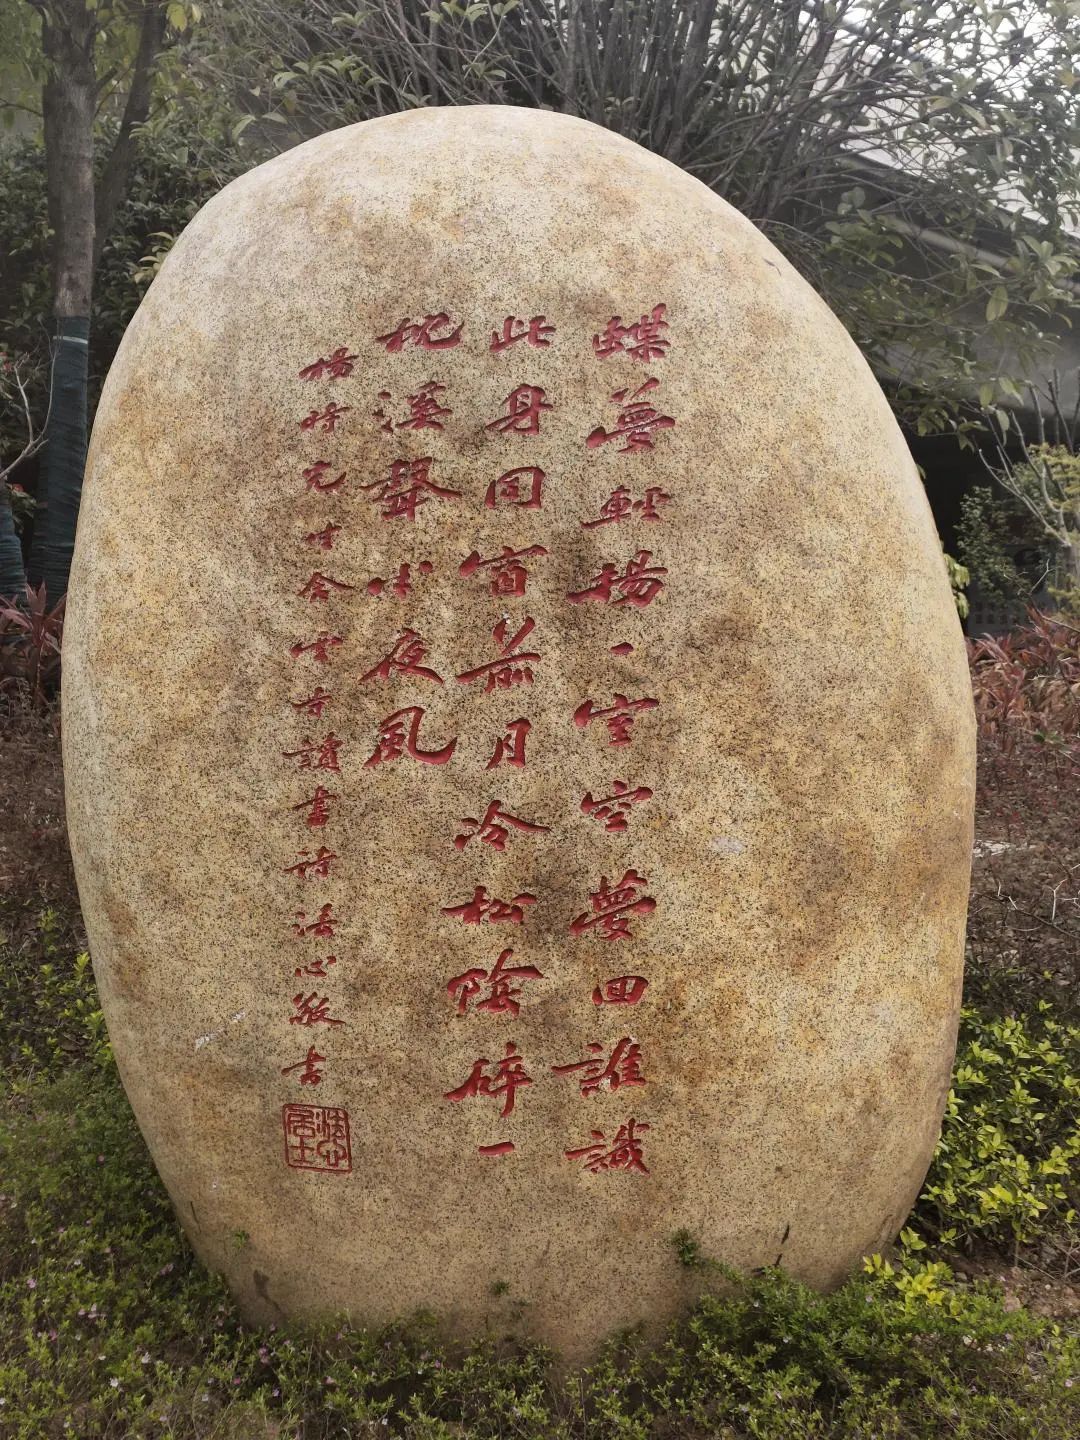 蝶夢輕揚一室空夢回誰識
此身同窗前月冷松陰碎一
枕溪聲半夜風
楊時先生含雲寺讀書詩法心敬書
法心居士